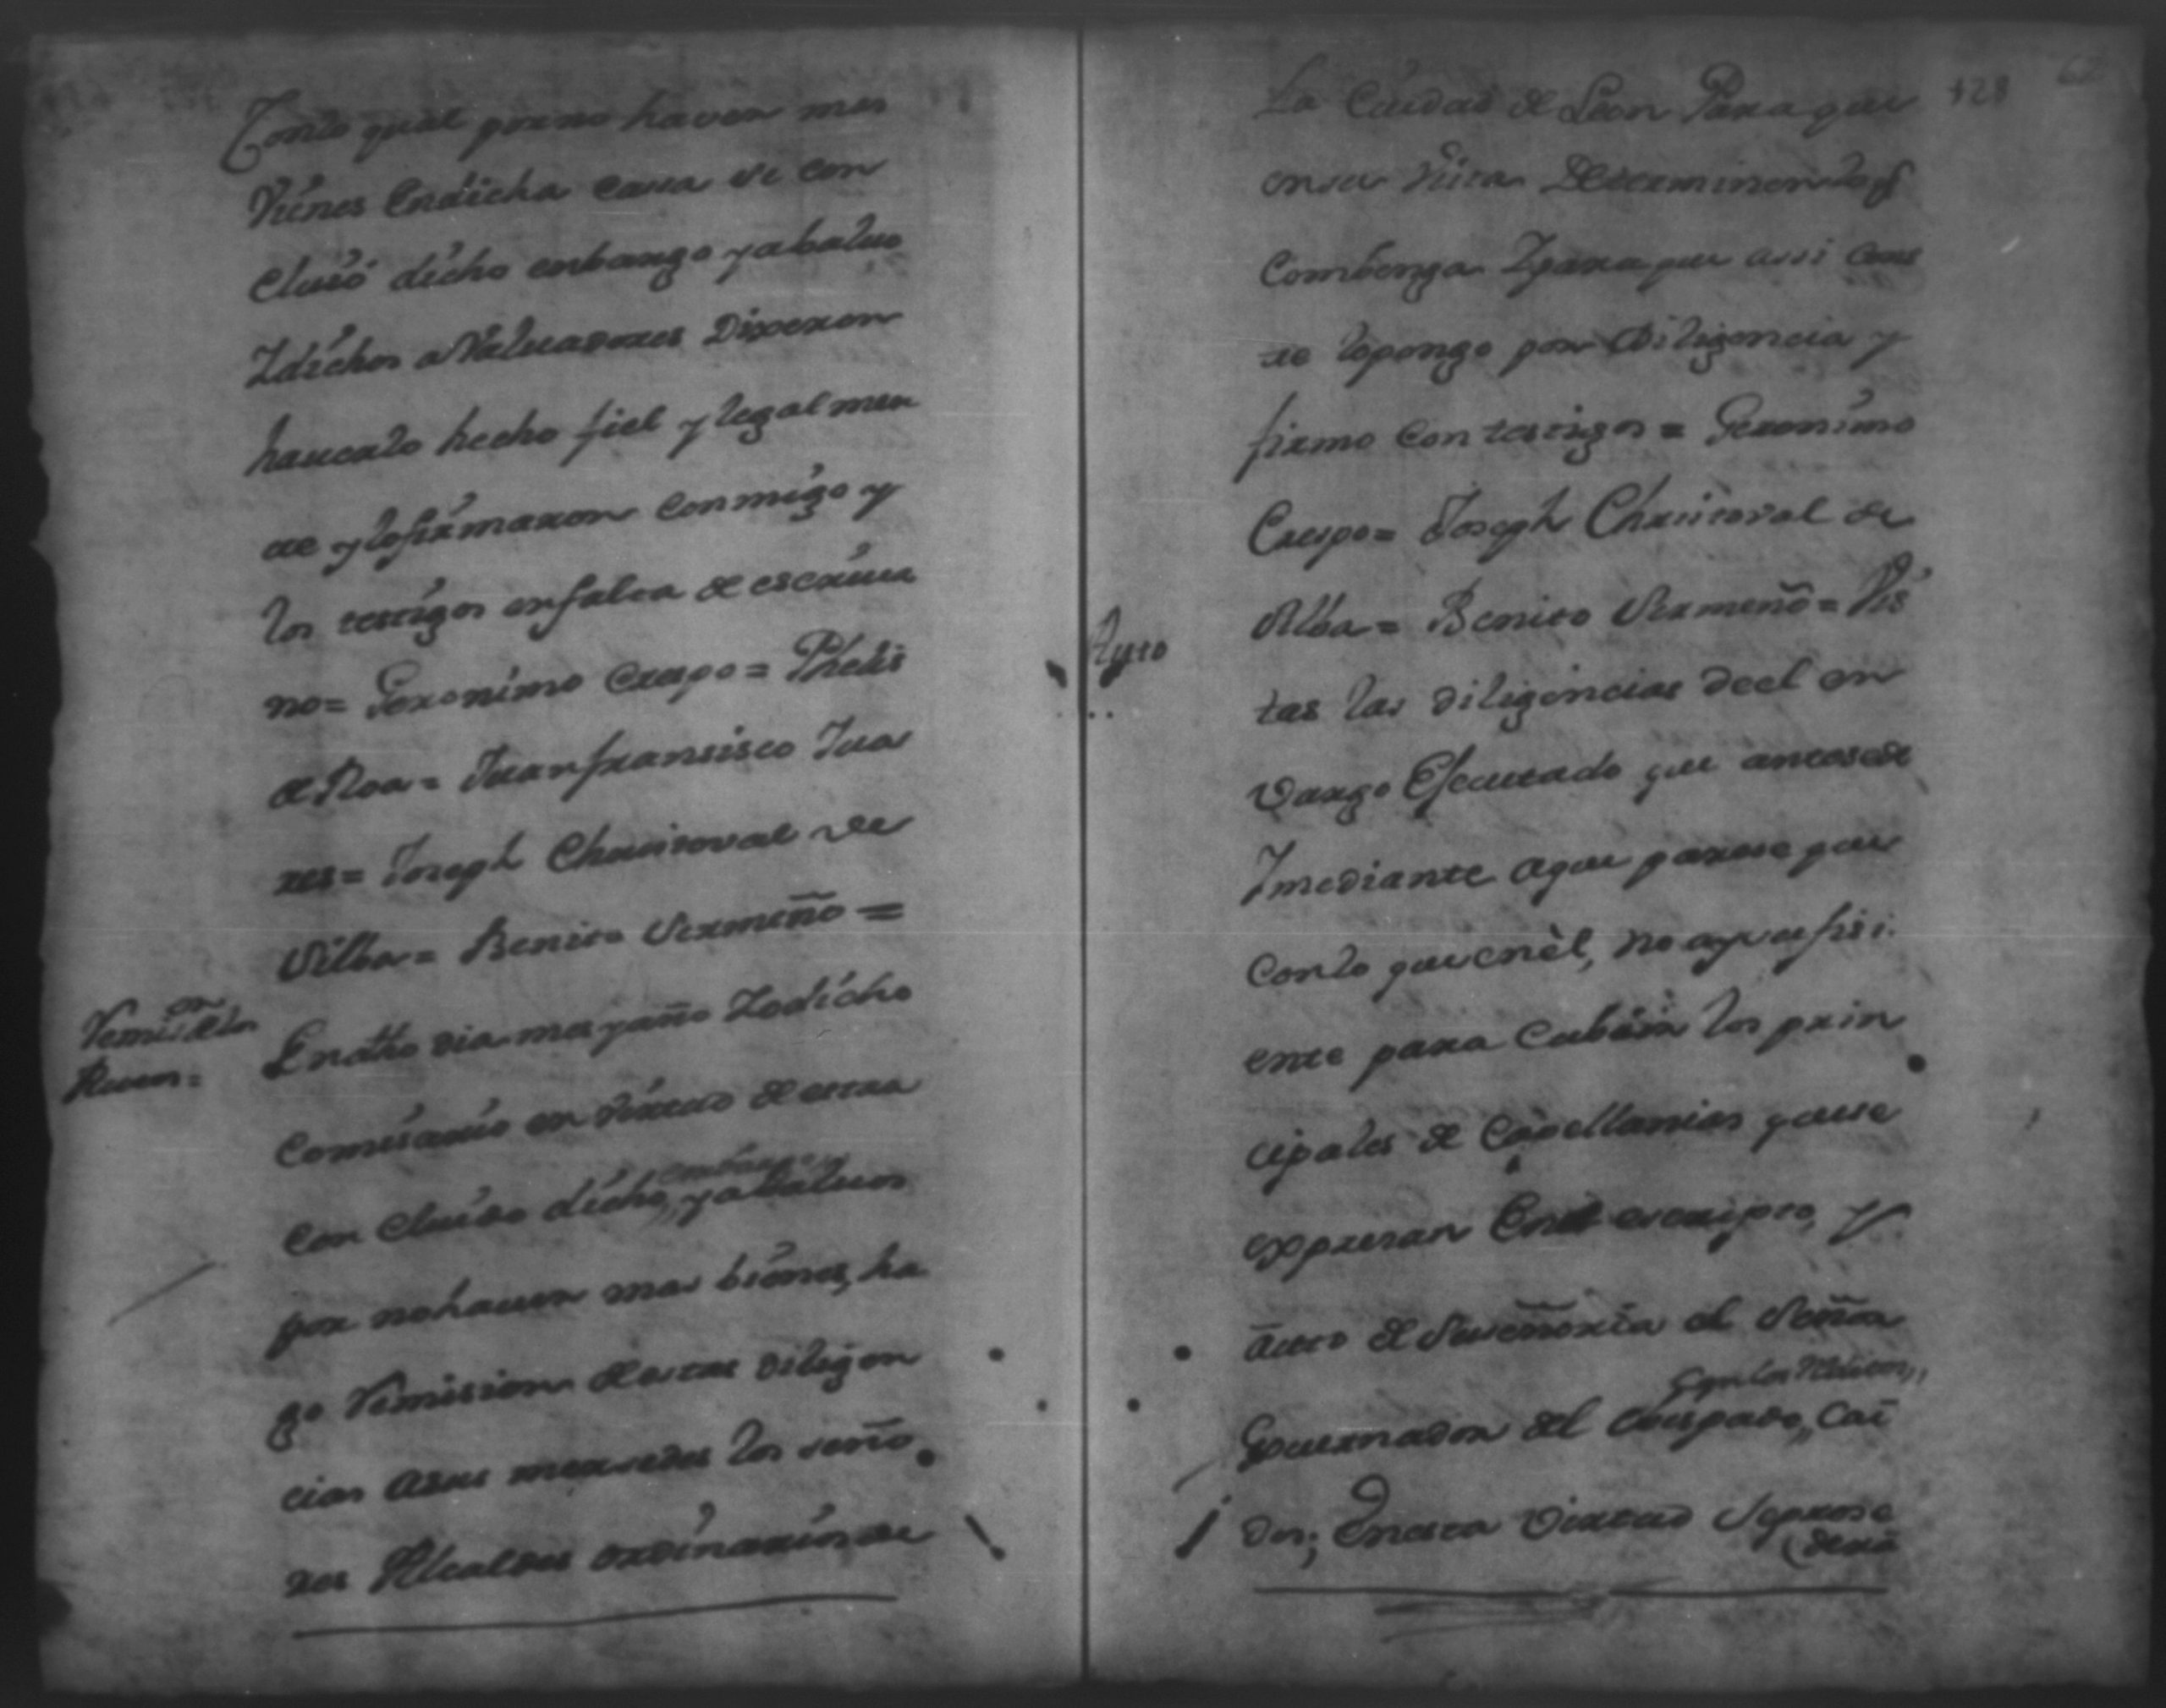 Conlo qual por no haver mas
Viènes Endicha casa se con
cluió dicho enbargo y abaluo
Idichos aValuadores Dixeron
hauerlo hecho fiel y legal men
te y lofirmaron conmigo y
los testigos enfalta de escriua
no= Geronimo Crespo= Phelis
de Roa= Juan fransisco Jua
res= Joseph Christoval de
Vilba= Benito Vermeño=
Remis.on de los
Endho dia mes y año Yodicho
Comisario en virtud de estar
Con cluido dicho, enbargo y abaluos
por nohauer mas biènes, ha
go Remision destas diligen
cias asus mersedes los seño
res Alcaldes ordinarios de
128
La Ciudad de Leon Para que
ensu vista Determinen lo q
Combenga Ypara que assi cons
te lopongo por Diligencia y
firmo Con testigos= Geronimo
Crespo= Joseph Christoval de
Vilba= Benito Vermeño= Vis
Auto
tas las diligencias deel en
vargo Esecutado que antesede
Ymediante aque parese que
Conlo que enèl, no ay sufisi
ente para Cubrir los prin
cipales de Capellanias quese
expresan En el escripto, y
auto de Suseñoria el Señor
Gouernador del Obispado,,
dos; Enesta Virtud